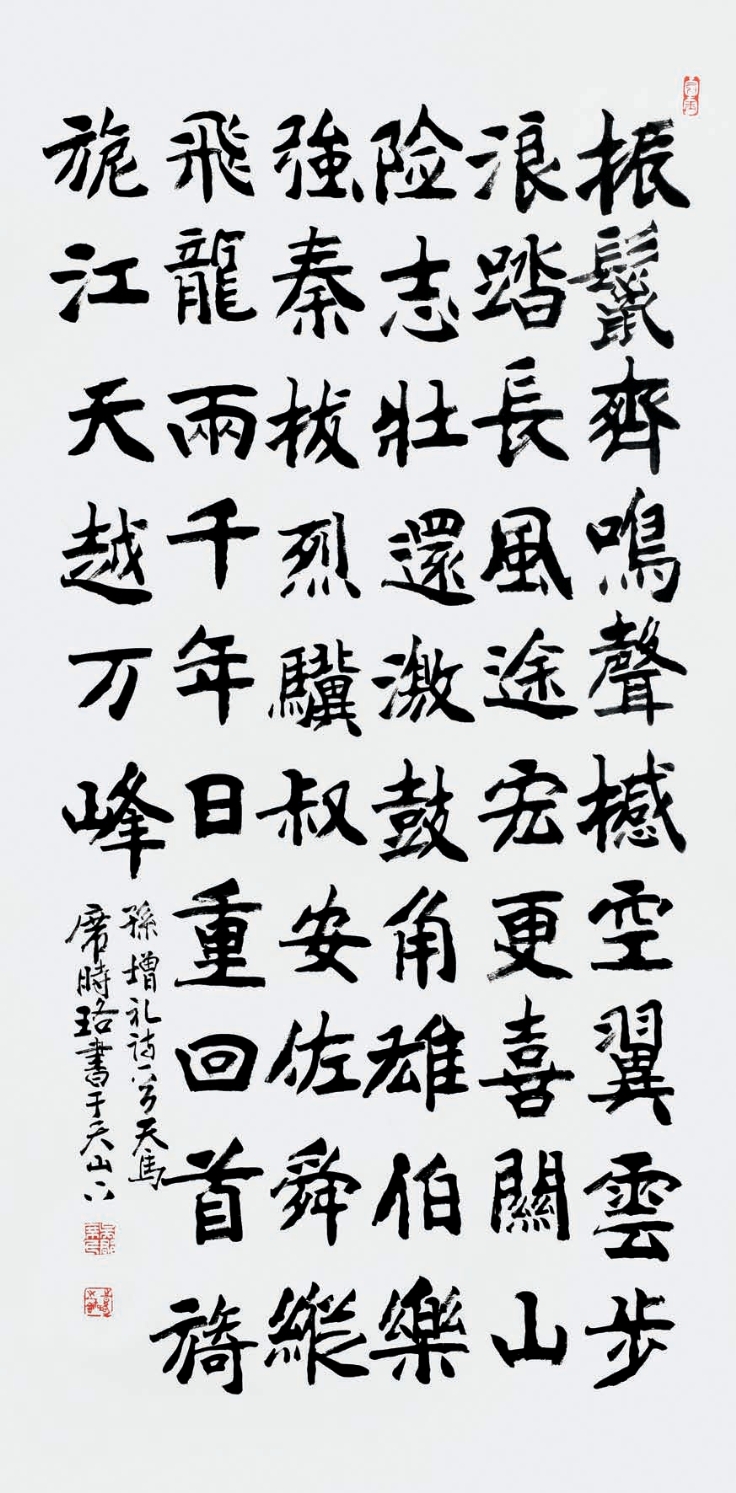 振鬣齊鳴聲撼空翼雲步
浪踏長風途宏更喜關山
险志壯還激鼓角雄伯樂
強秦拔烈驥叔安佐舜縱
飛龍兩千年日重回首旖
旎江天越万峰
孫增礼詩一首天馬
席時珞書于天山下